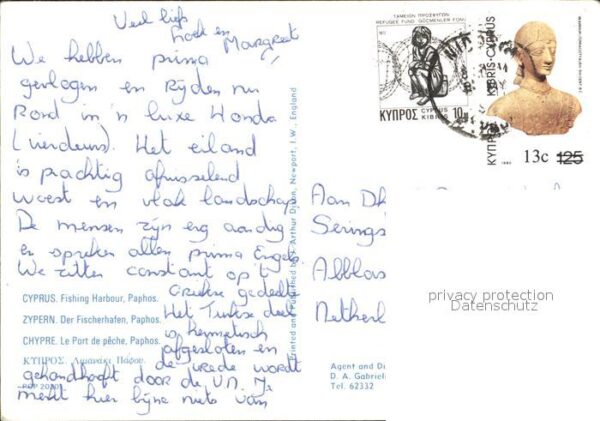 Veel liefs
Loek en
Margreet
We hebben prima
gevlogen en Rijden nu
Rond in 'n luxe Honda
(vierdeurs). Het eiland
is prachtig afwisselend
woest en vlak landschap
De mensen zijn erg aardig
en spreken allen prima Engels
We zitten constant op 't
Griekse gedeelte
Het Turkse deel
is hermetisch
afgesloten en
de vrede wordt
gehandhaaft door de U.N. Je
merkt hier bijna niets van
CYPRUS. Fishing Harbour, Paphos.
ZYPERN. Der Fischerhafen, Paphos.
CHYPRE. Le Port de pêche, Paphos.
ΚΥΠΡΟΣ. Λιμανάκι Πάφου.
Printed and Published by Arthur Dixon, Newport, I.W., England
ΤΑΜΕΙΟΝ ΠΡΟΣΦΥΓΩΝ
REFUGEE FUND GÖCMENLER FONU
CYPRUS
ΚΥΠΡΟΣ KIBRIS 10
ΚΥΠΡΟΣ KIBRIS-CYPRUS
13c 125
Aan
Serings
Alblas
Netherl
privacy protection
Datenschutz
Agent and Di
D. A. Gabriel
Tel. 62332